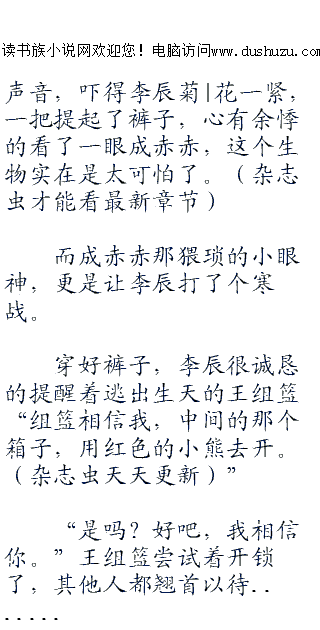 读书族小说网欢迎您！电脑访问www.dushuzu.com
声音，吓得李辰菊|花一紧，
一把提起了裤子，心有余悸
的看了一眼成赤赤，这个生
物实在是太可怕了。（杂志
虫才能看最新章节）
而成赤赤那猥琐的小眼
神，更是让李辰打了个寒
战。
穿好裤子，李辰很诚恳
的提醒着逃出生天的王组篮
“组篮相信我，中间的那个
箱子，用红色的小熊去开。
（杂志虫天天更新）”
“是吗？好吧，我相信
你。”王组篮尝试着开锁
了，其他人都翘首以待..
.....